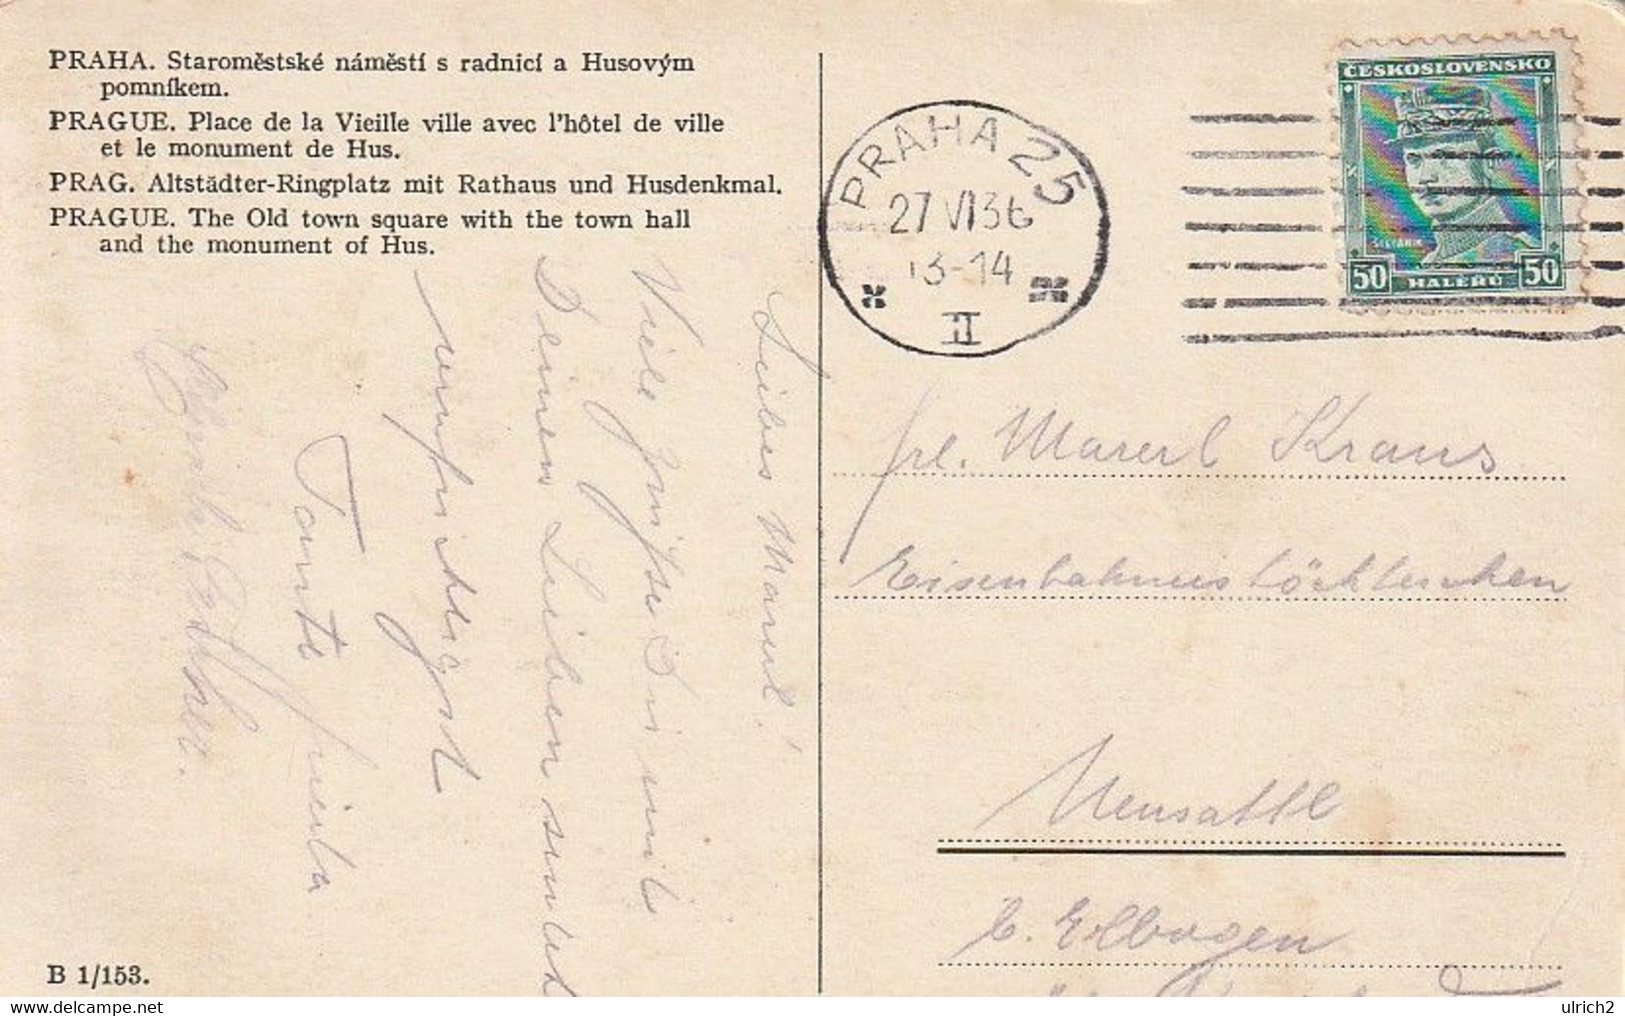 PRAHA. Staroměstské náměstí s radnicí a Husovým
pomníkem.
PRAGUE. Place de la Vieille ville avec l'hôtel de ville
et le monument de Hus.
PRAG. Altstädter-Ringplatz mit Rathaus und Husdenkmal.
PRAGUE. The Old town square with the town hall
and the monument of Hus.
Liebes Marerl!
Viele Grüsse Dir mit
Deinen Lieben sendet
aufrichtigst
Tante
B 1/153.
PRAHA 25
27 VI 36
13-14
II
ČESKOSLOVENSKO
ŠTEFÁNIK
50 HALÉŘŮ 50
frl. Marerl Kraus
Neusattl
b. Elbogen
ulrich2